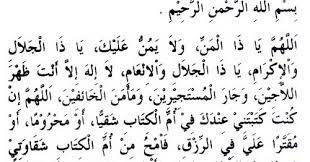 بِسْمِ اللهِ الرَّحْمنِ الرَّحِيْمِ .
اَللّهُمَّ يَا ذَا الْمَنِّ، وَلَا يَمُنُّ عَلَيْكَ، يَا ذَا الْجَلَالِ
وَاْلاِكْرَامِ، يَا ذَا الْجَلَالِ وَاْلاِنْعَامِ، لَا إِلهَ إِلَّا أَنْتَ ظَهْرَ
اللَّاجِيْنَ، وَجَارَ الْمُسْتَجِيْرِيْنَ وَمَأْمَنَ الْخَائِفِيْنَ، اَللّهُمَّ إِنْ
كُنْتَ كَتَبْتَنِيْ عِنْدَكَ فِيْ أُمِّ الْكِتَابِ شَقِيًّا، أَوْ مَحْرُوْمًا، أَوْ
مُقَتَّرًا عَلَيَّ فِي الرِّزْقِ، فَامْحُ مِنْ أُمِّ الْكِتَابِ شَقَاوَتِيْ